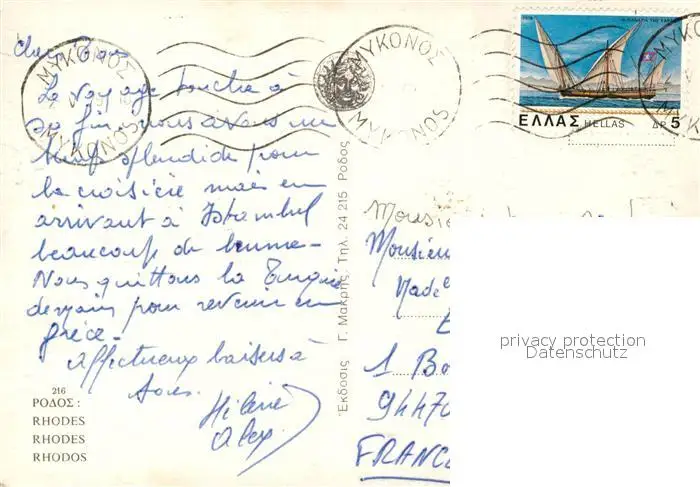 ΜΥΚΟΝΟΣ
MYKONOS
ΜΥΚΟΝΟΣ
MYKONOS
ΕΛΛΑΣ HELLAS ΔΡ 5
Le voyage touche à
sa fin, nous avons un
temps splendide pour
la croisière mais en
arrivant à Istambul
beaucoup de brume -
Nous quittons la Turquie
demain pour revenir en
grèce -
Affectueux baisers à
tous.
Hélène
Alex
216
ΡΟΔΟΣ :
RHODES
RHODES
RHODOS
Ἔκδοσις Γ. Μακρῆς, Τηλ. 24 215 Ροδος
Monsieur
Made
1 Bo
94470
FRANC
privacy protection
Datenschutz